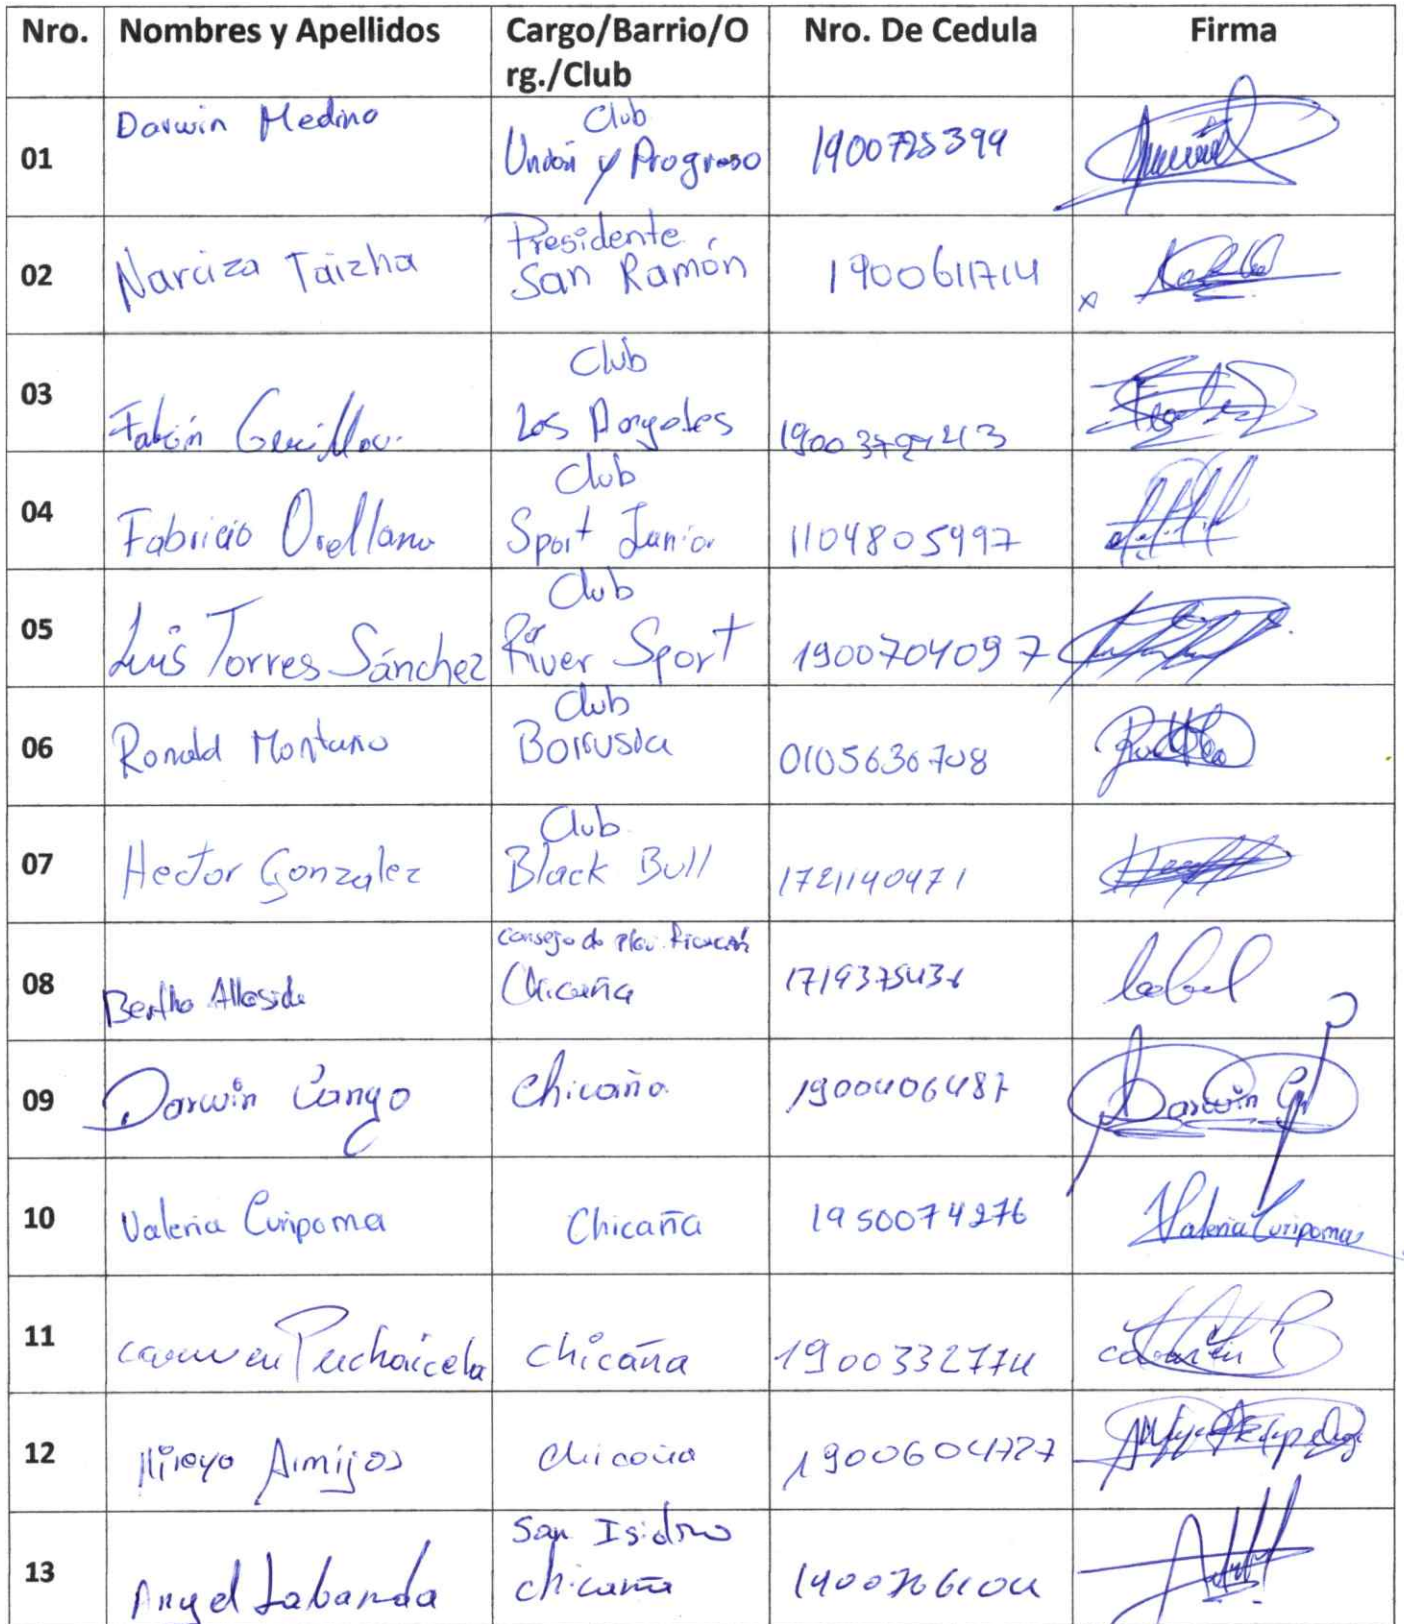 Nro. Nombres y Apellidos Cargo/Barrio/O Nro. De Cedula Firma
rg./Club
01 Darwin Medina Club
Unión y Progreso 1900725399
02 Narciza Taizha Presidente
San Ramón 1900611714
03 Fabián Club
Los
04 Fabricio Orellana Club
Sport Junior 1104805997
05 Luis Torres Sánchez Club
River Sport 1900704097
06 Ronald Montaño Club
Borrusia 0105636708
07 Hector Gonzalez Club
Black Bull 1721140471
08 Consejo de
Chicaña
09 Darwin Cango Chicaña 1900406487 Darwin
10 Valeria Curipoma Chicaña 1950074276 Valeria Curipoma
11 Carmen Puchaicela Chicaña 1900332774
12 Mireya Armijos Chicaña 1900604727
13 Angel Labanda San Isidro
Chicaña